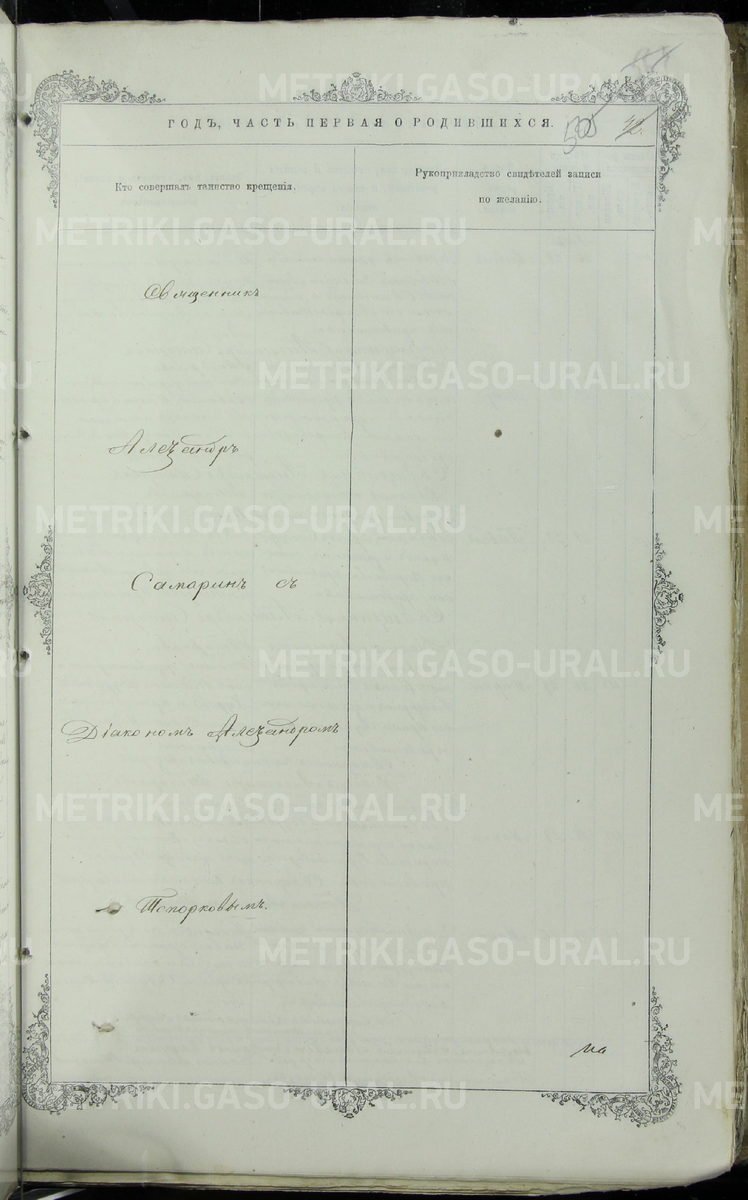 ГОДЪ, ЧАСТЬ ПЕРВАЯ О РОДИВШИХСЯ.
505
Кто совершалъ таинство крещенія.
Рукоприкладство свидѣтелей записи
по желанію.
Священникъ
Александръ
Самаринъ съ
Діакономъ Александромъ
Топорковымъ.
METRIKI.GASO-URAL.RU